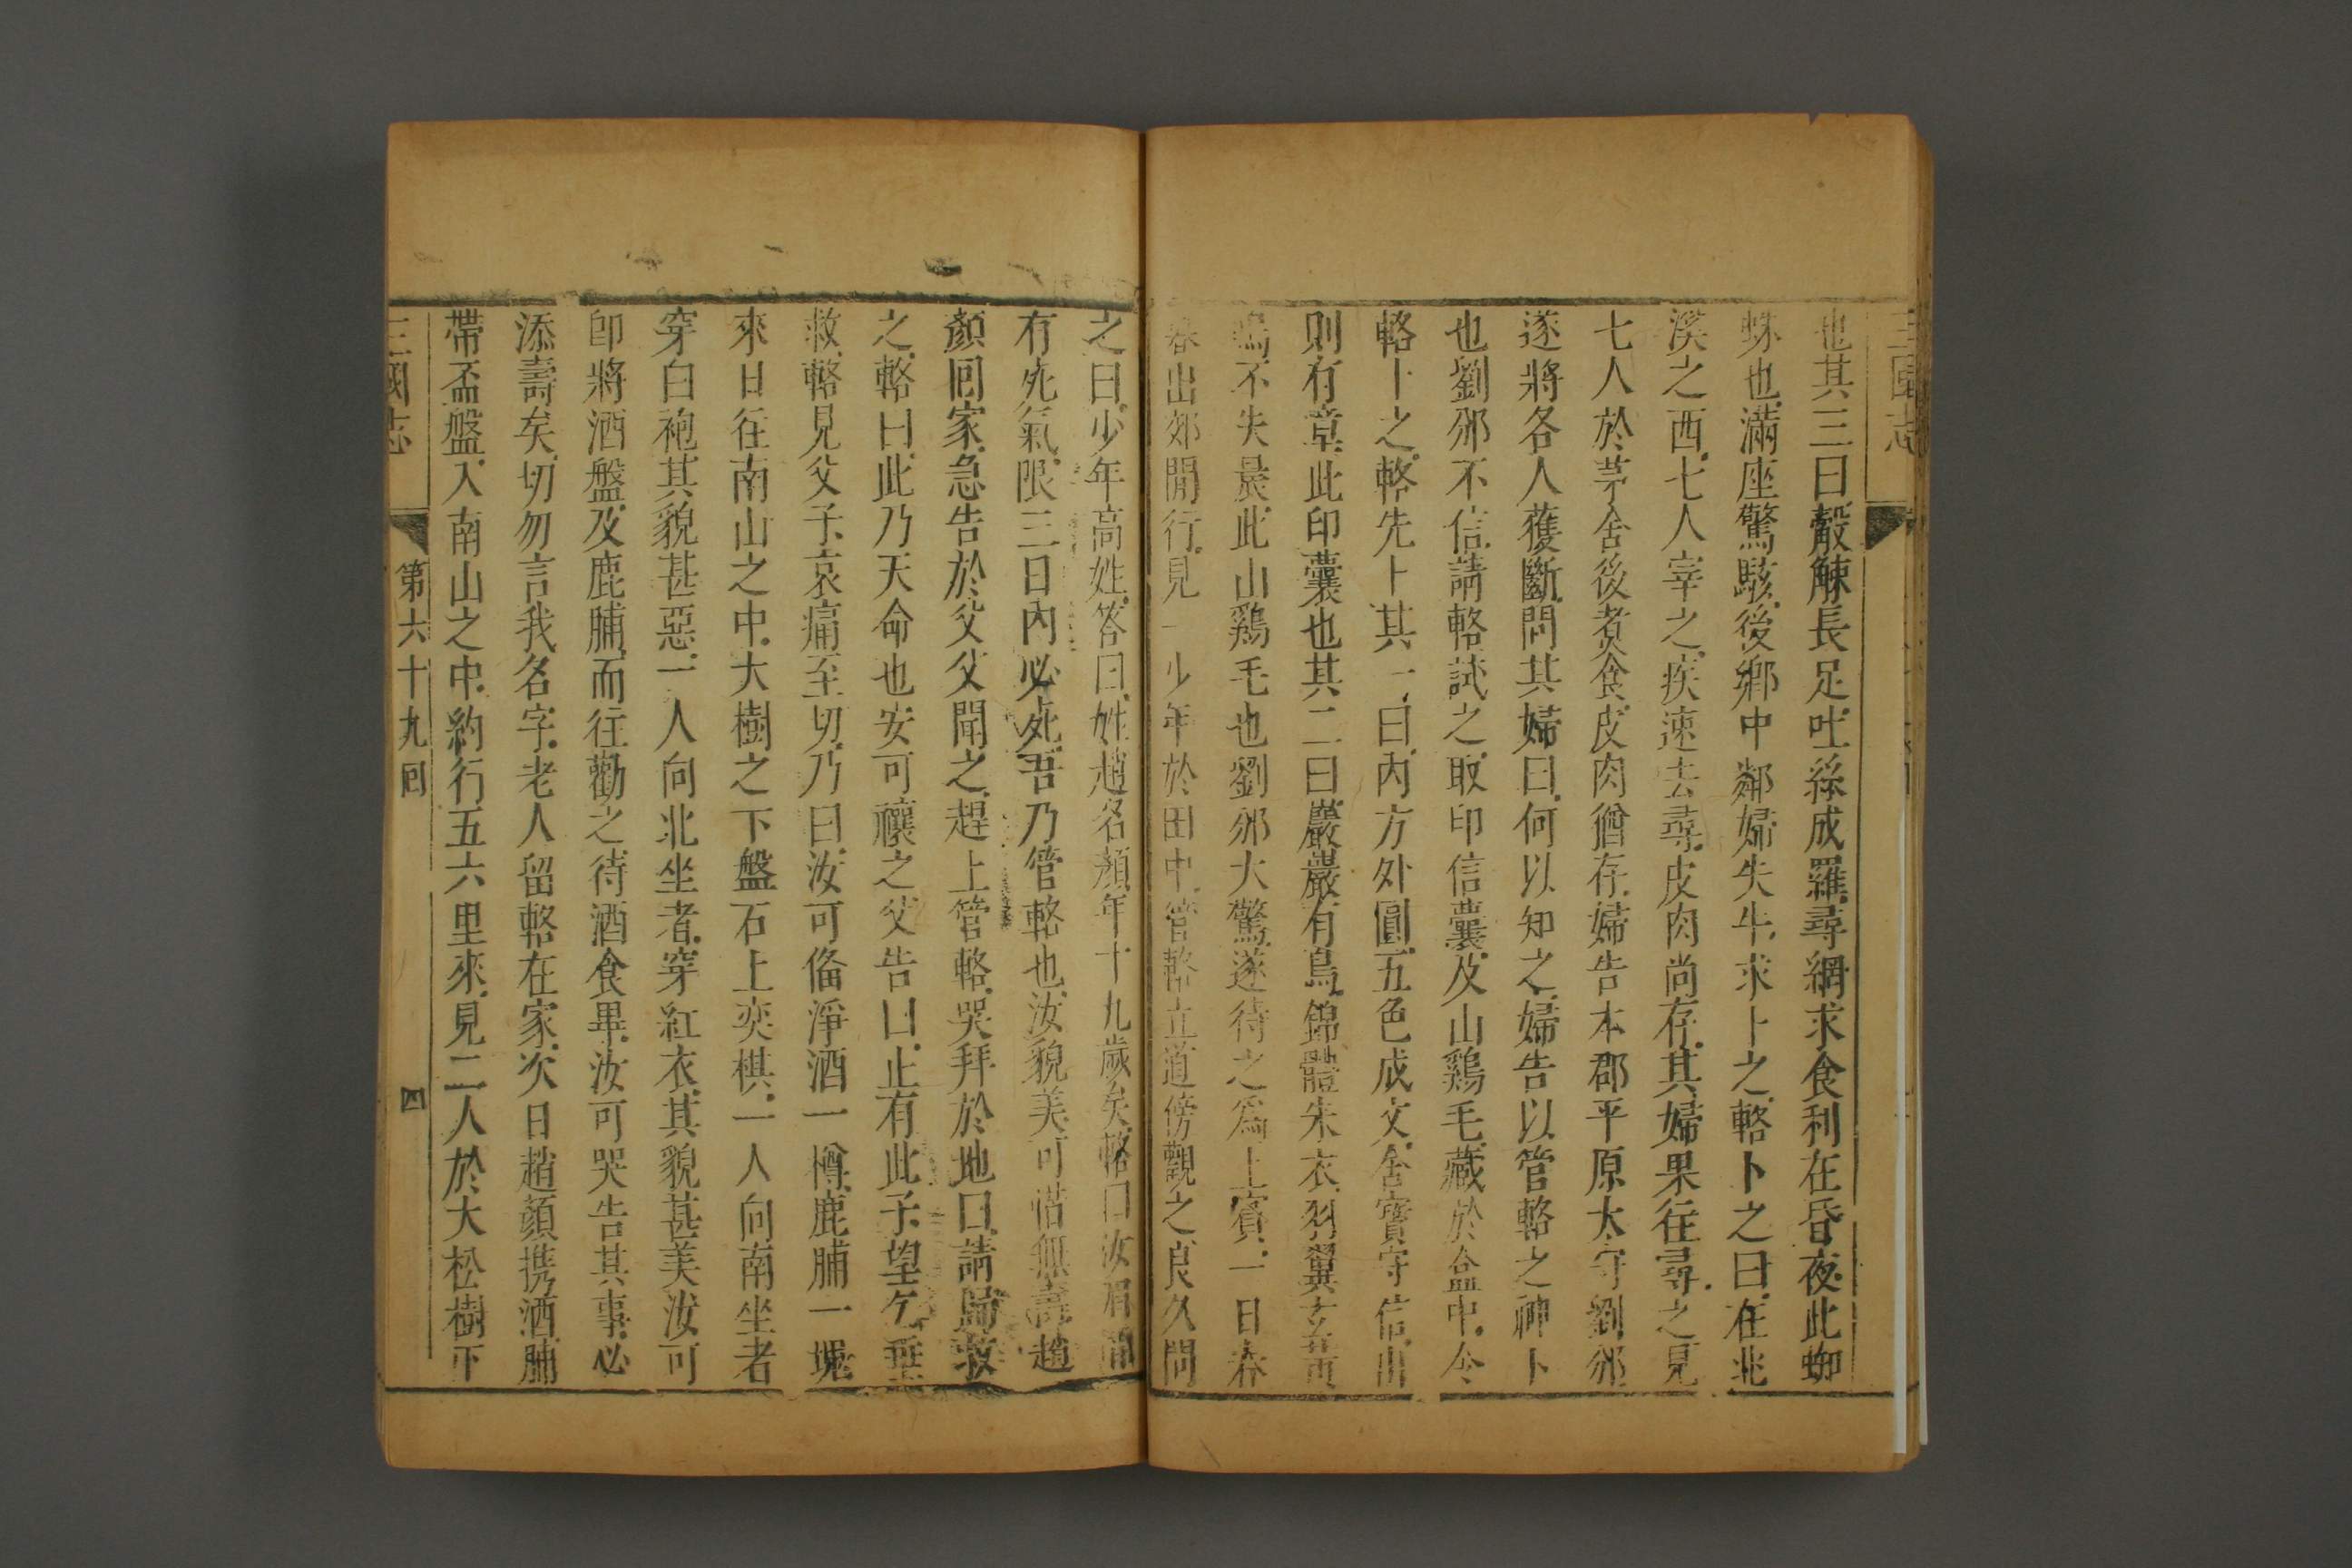 三國志
也其三曰觳觫長足吐絲成羅尋網求食利在昏夜此蜘
蛛也滿座驚駭後鄉中鄰婦失牛求卜之輅卜之曰在北
溪之西七人宰之疾速去尋皮肉尚存其婦果往尋之見
七人於茅舍後煮食皮肉猶存婦告本郡平原太守劉邠
遂將各人獲斷問其婦曰何以知之婦告以管輅之神卜
也劉邠不信請輅試之取印信囊及山鷄毛藏於盒中令
輅卜之輅先卜其一曰內方外圓五色成文舍寶守信出
則有章此印囊也其二曰巖巖有鳥錦體朱衣羽翼玄黃
鳴不失晨此山鷄毛也劉邠大驚遂待之為上賓一日春
暮出郊閒行見一少年於田中管輅立道傍觀之良久問
之曰少年高姓答曰姓趙名顏年十九歲矣輅曰汝眉間
有死氣限三日內必死吾乃管輅也汝貌美可惜無壽趙
顏囘家急告於父父聞之趕上管輅哭拜於地曰請歸救
之輅曰此乃天命也安可禳之父告曰止有此子望乞垂
救輅見父子哀痛至切乃曰汝可偹淨酒一樽鹿脯一塊
來日往南山之中大樹之下盤石上奕棋一人向南坐者
穿白袍其貌甚惡一人向北坐者穿紅衣其貌甚美汝可
卽將酒盤及鹿脯而往勸之待酒食畢汝可哭告其事必
添壽矣切勿言我名字老人留輅在家次日趙顏携酒脯
帶盃盤入南山之中約行五六里來見二人於大松樹下
三國志 第六十九囘 四